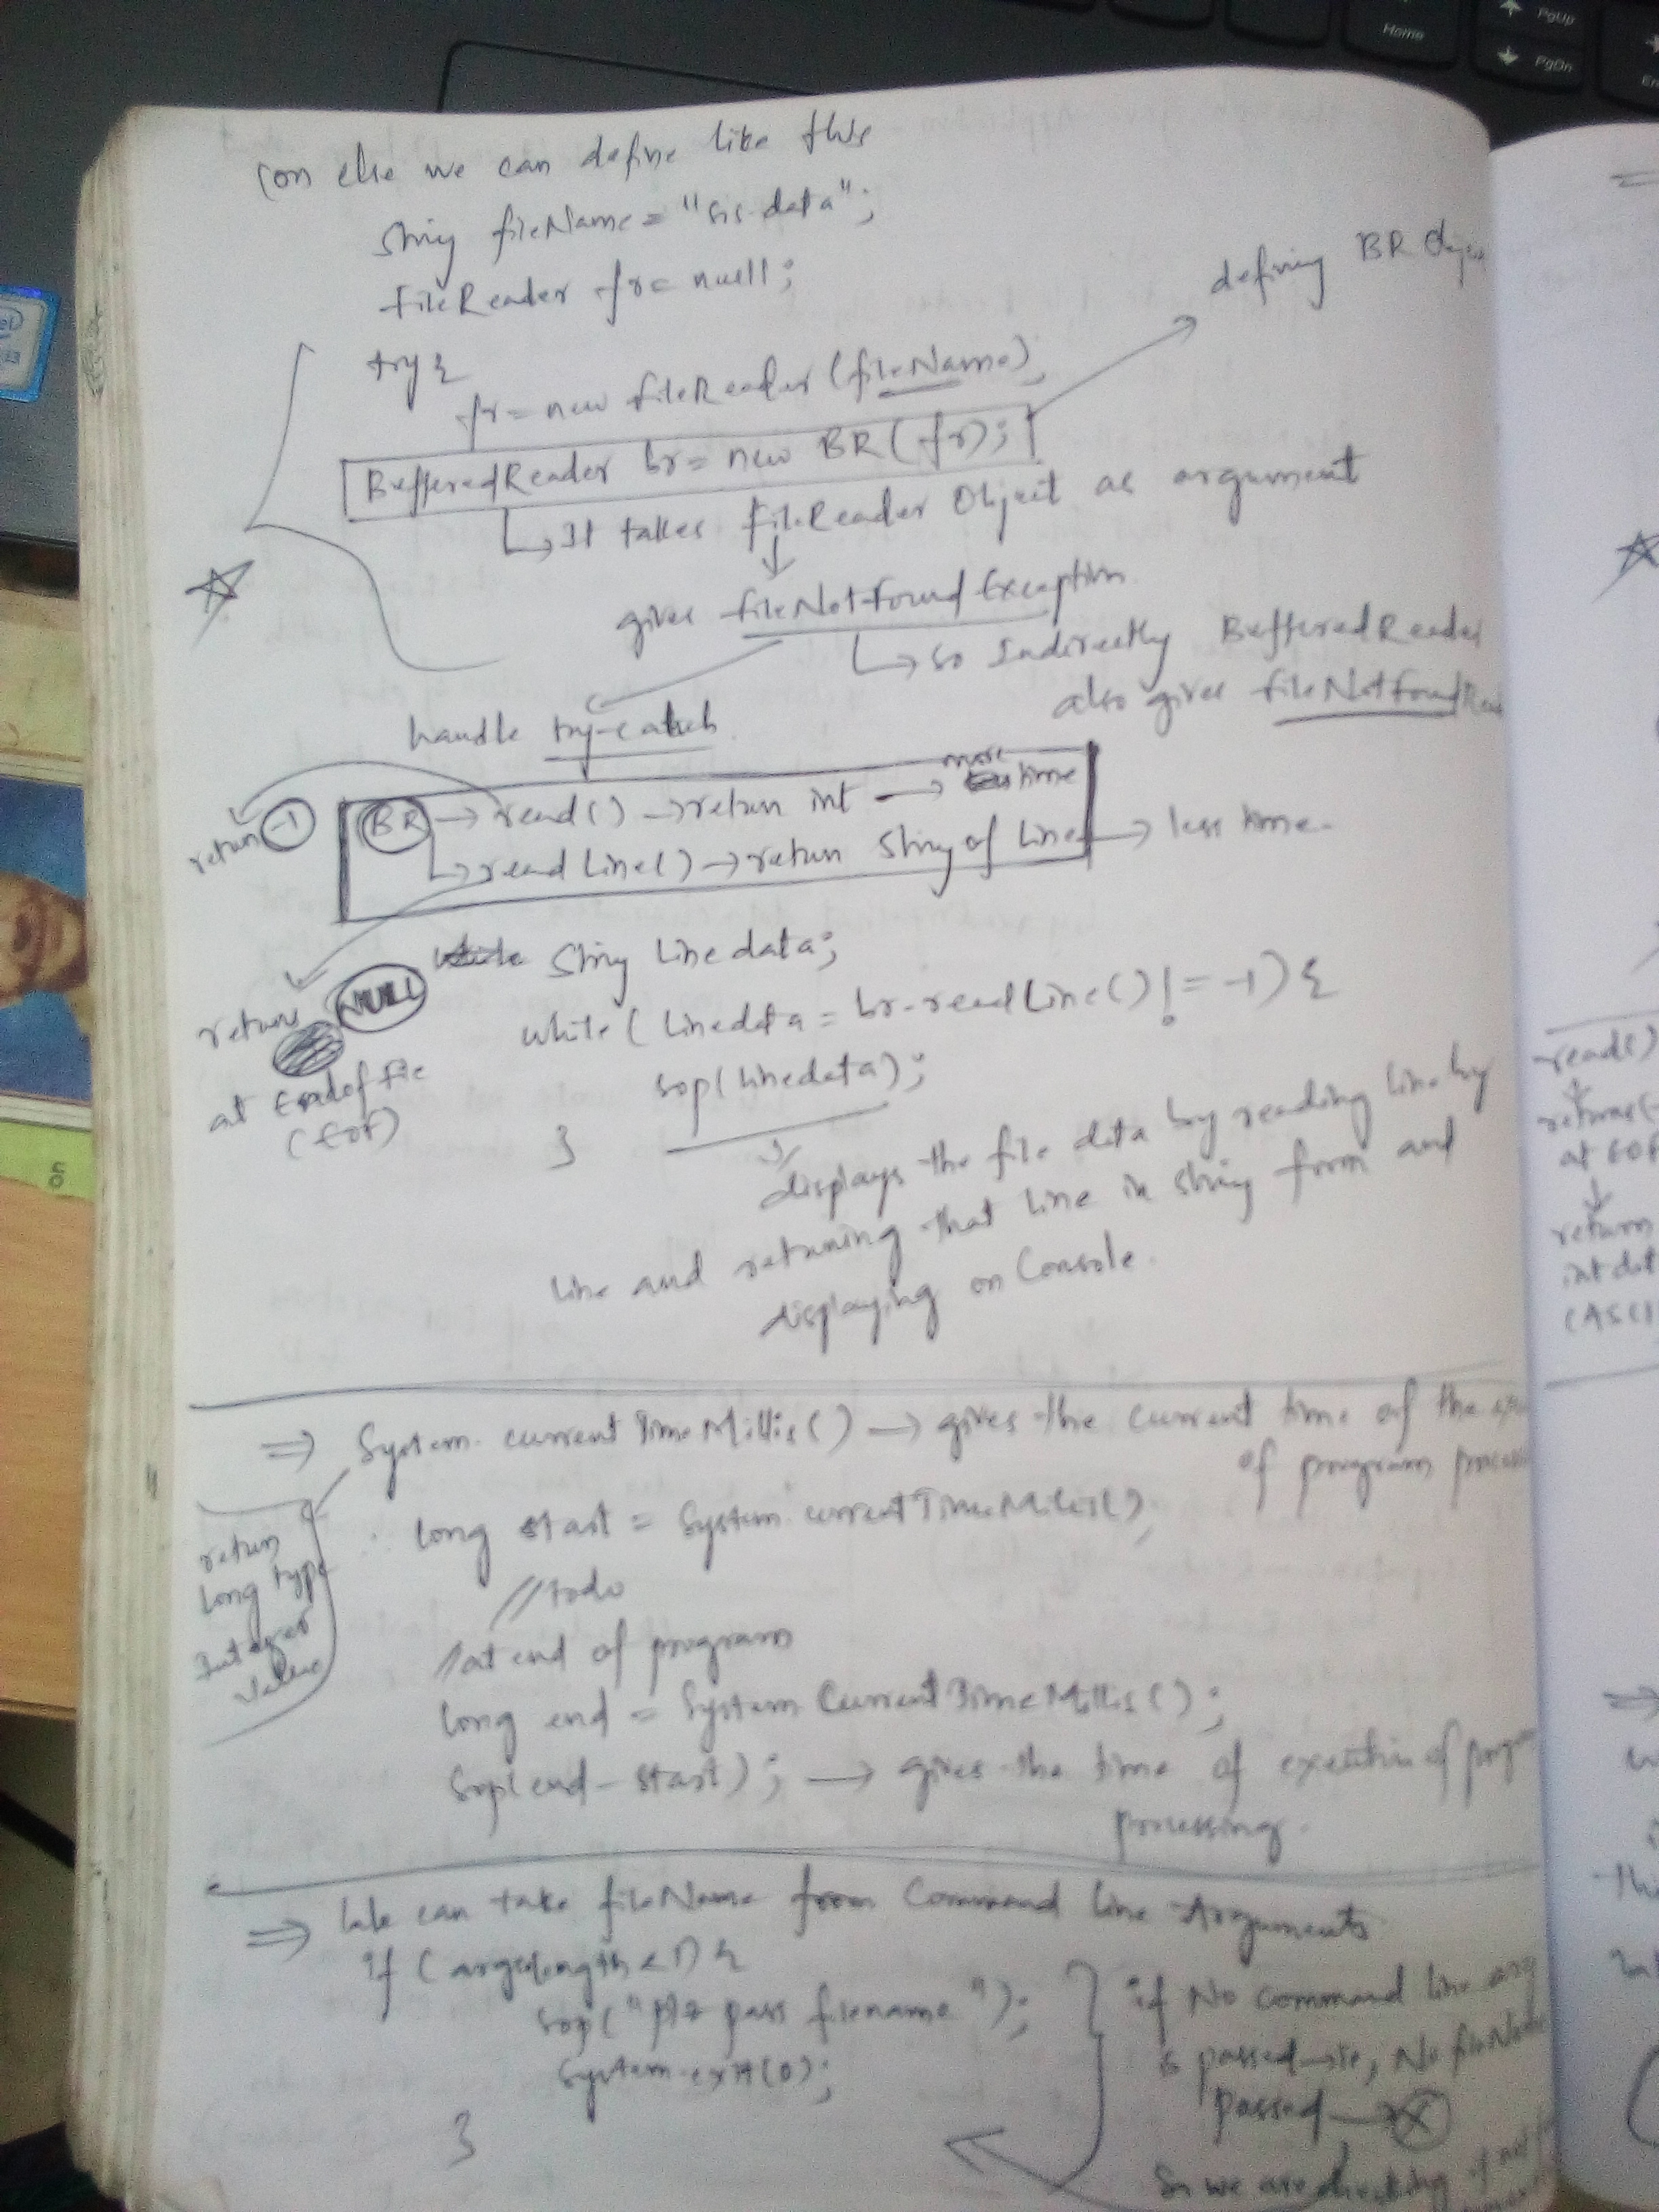 (or) else we can define like this
String fileName = "src.data";
FileReader fr = null;
try {
fr = new FileReader (fileName);
BufferedReader br = new BR (fr);
defining BR Objec
It takes FileReader Object as argument
gives FileNotFoundException
so Indirectly BufferedReader
also gives FileNotFound
handle try-catch
BR → read() → return int → more time
return -1
→ readLine() → return String of Line → less time.
String Linedata;
return NULL
at Endof file
(EOF)
while ( Linedata = br.readLine() != -1) {
sop(linedata);
}
displays the file data by reading line by
line and retuning that line in string form and
displaying on Console.
⇒ System.currentTimeMillis() → gives the current time of the
of program
return
Long type
Integer
value
long start = System.currentTimeMillis();
//todo
//at end of program
long end = System.CurrentTimeMillis();
Sop(end - start); → gives the time of execution of
processing.
⇒ We can take fileName from Command line Arguments
if (args.length < 1) {
sop("plz pass filename");
System.exit(0);
}
if No command line arg
is passed → ie, No fileName
passed → X
So we are checking if
Home
PgUp
PgDn
read()
at EOF
return